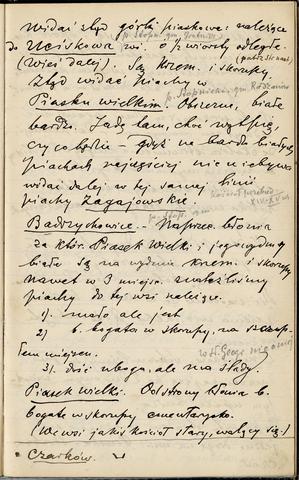 Widać stąd górki piaskowe: należące
p. Stopn. gm.
do Uciskowa wsi. o 1/2 wiorsty odległe
(Wieś dalej). Są krzem. i skorupy.
Stąd widać piachy w
p. Stopnicki, gm.
Piasku wielkim. Obszerne, białe
bardzo. Jadę tam, choć wątpię,
czy co będzie – gdyż na bardzo białych
piachach najczęściej nie nie bywa
widać dalej w tej samej linii
piachy Zagajowskie.
XIV-XV w.
p. Stop. gm.
Badrzychowice. – Naprzec. błonia
za któr. Piasek Wielki i jego wydmy
białe są na wydmie krzem. i skorupy
nawet w 3 miejsc. znaleźliśmy
piachy do tej wsi należące.
1). mało ale jest
2) b. bogate w skorupy, na
tem miejscu.
3). dość uboga, ale ma ślady.
Piasek Wielki. Od strony błonia b.
bogate w skorupy cmentarzysko.
(We wsi jakiś kościół stary, walący się.)
Czarków.